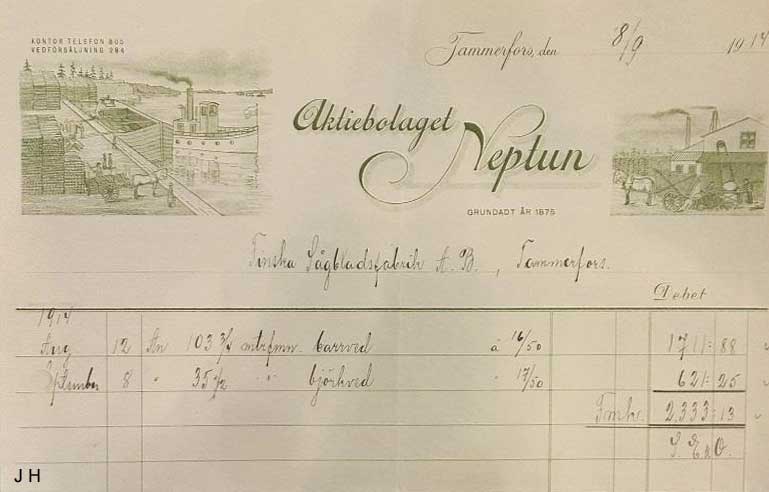 KONTOR TELEFON 805
VEDFÖRSÄLJNING 284
Tammerfors, den 8/9 1917
Aktiebolaget
Neptun
GRUNDADT ÅR 1875
Finska Sågbladsfabrik A.B., Tammerfors.
Debet
1917
Aug 12 An 103 3/4 mtrfmn. barrved à 16/50 1711:88
September 8 " 35 1/2 " " björkved " 17/50 621:25
Fmk. 2,333:13
S. E & O.
J H